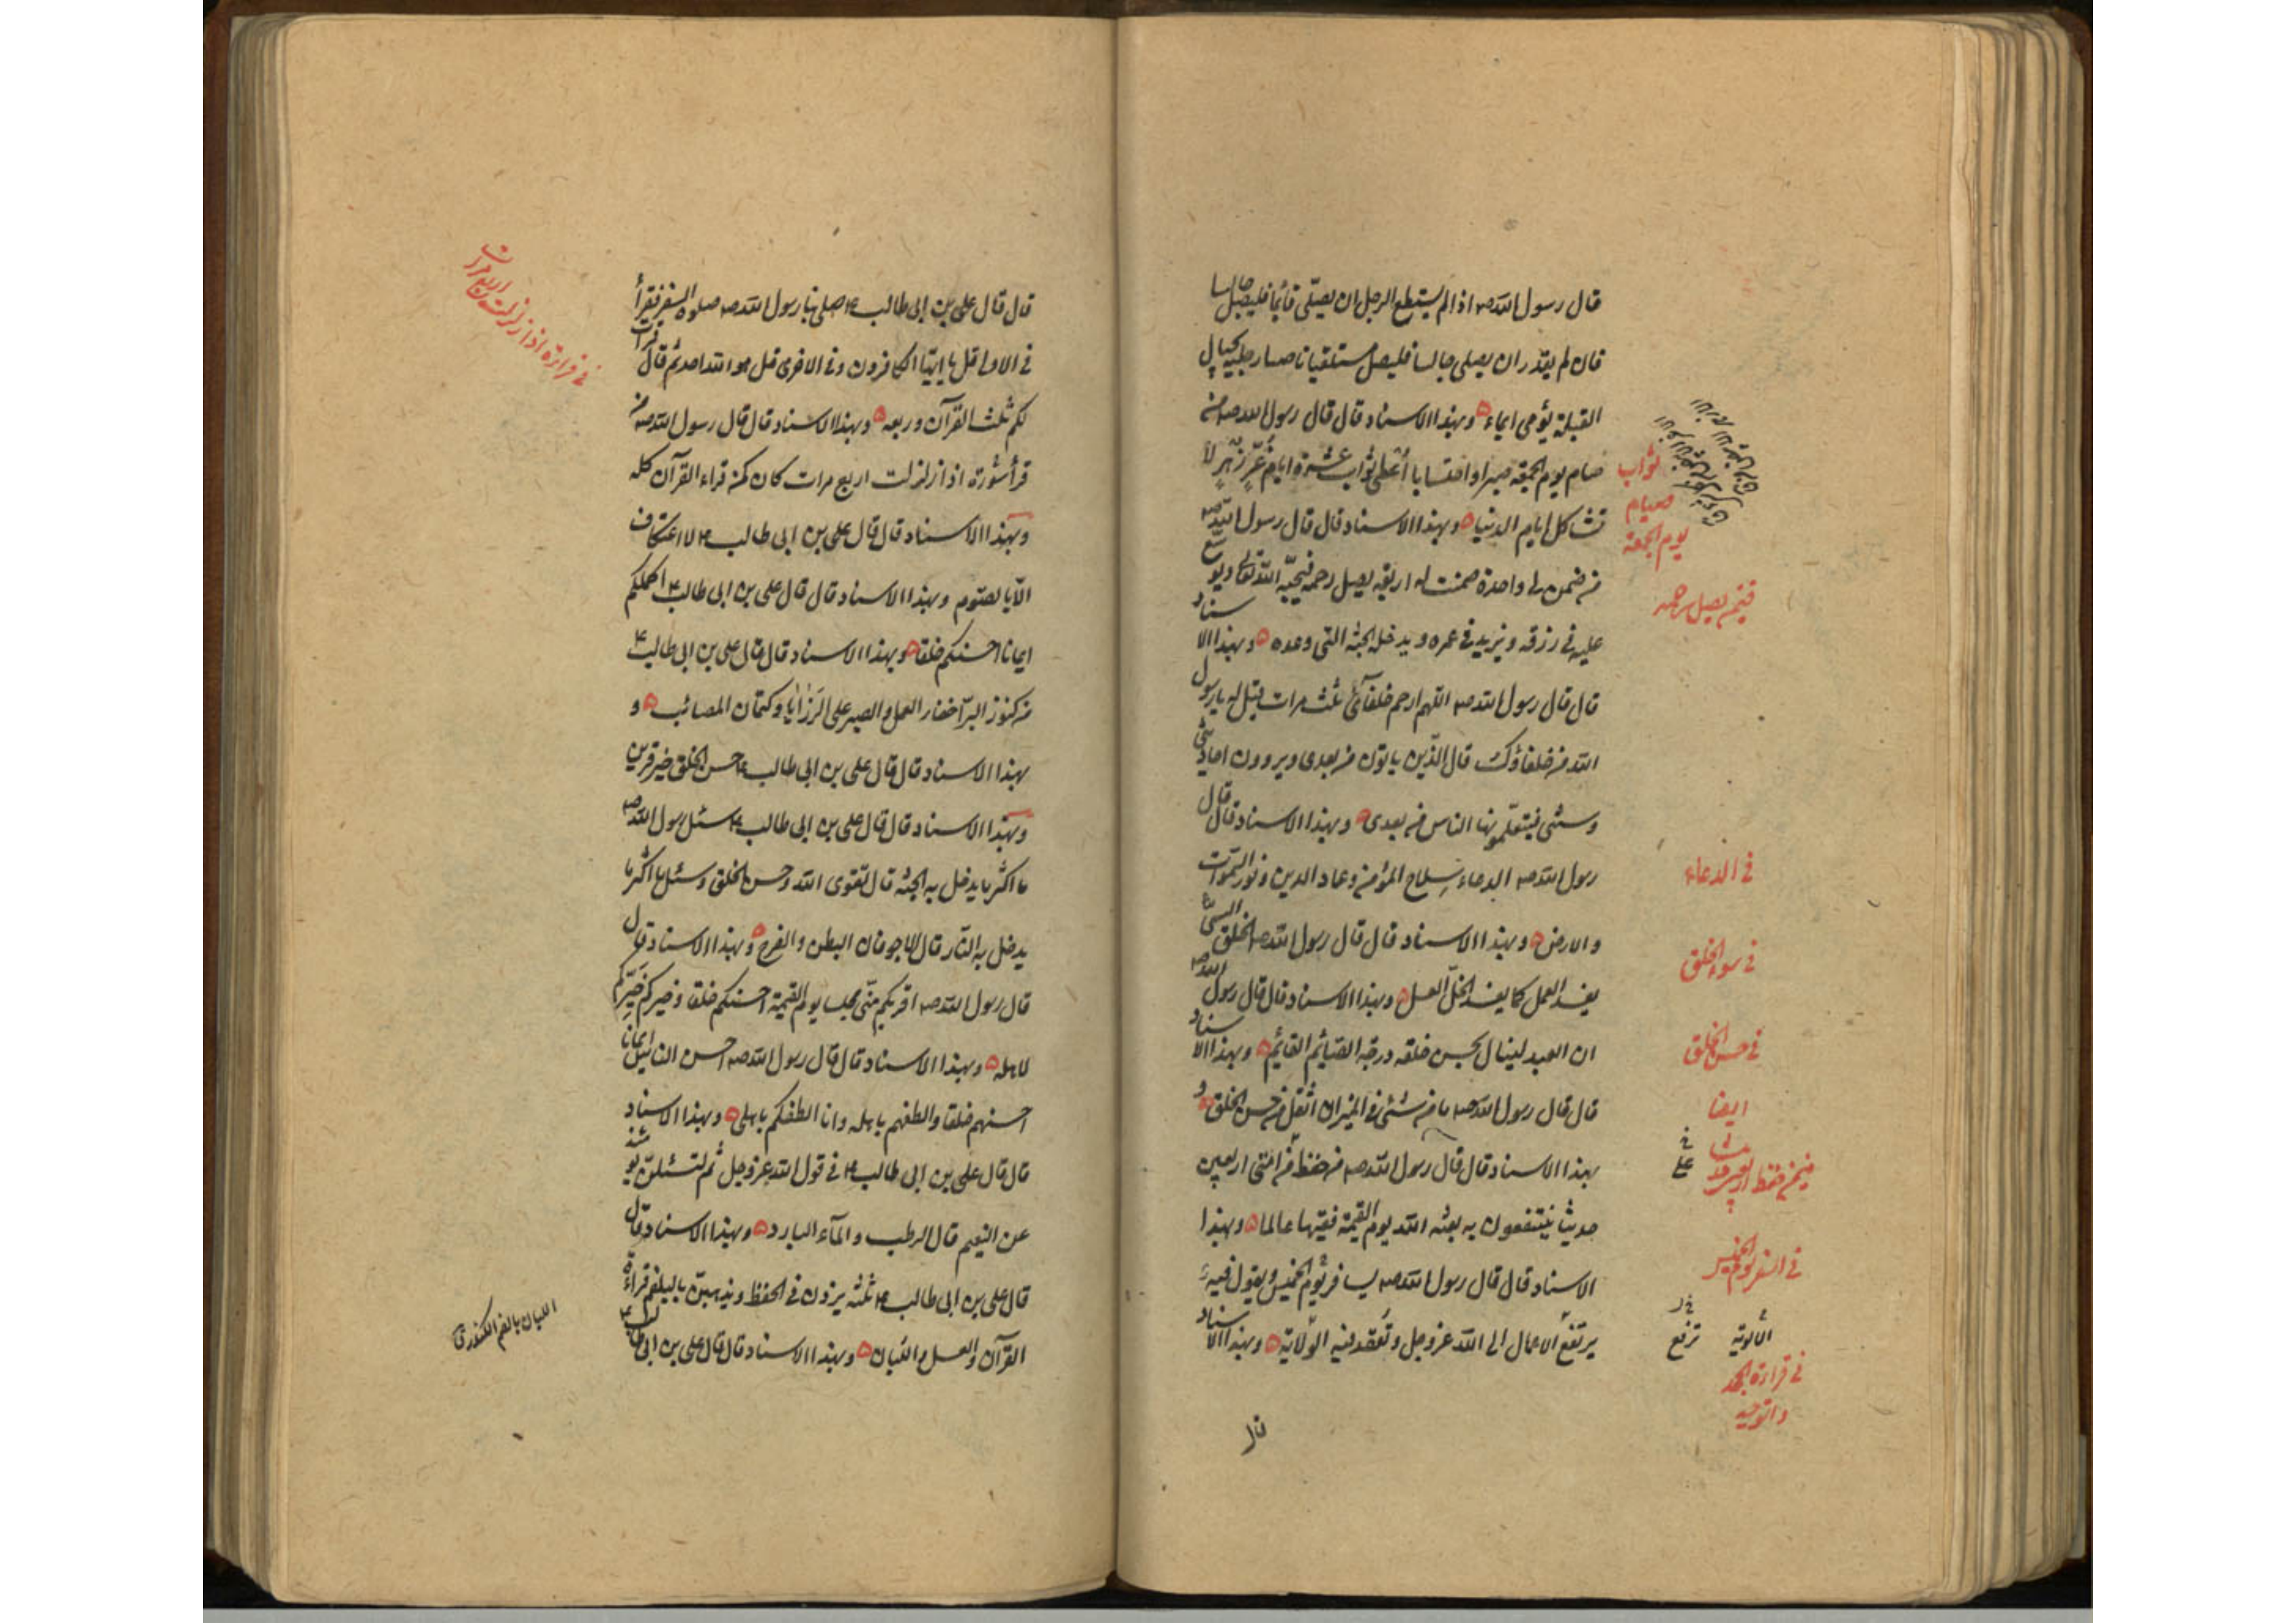 قال رسول الله ص اذا لم يستطع الرجل ان يصلّى قائما فليصل جالسا
فان لم يقدر ان يصلى جالسا فليصل مستلقيا ناصبا رجليه بحيال
القبلة يؤمى ايماء وبهذا الاسناد قال قال رسول الله ص من
صام يوم الجمعة صبرا واحتسابا أعطى ثواب عشرة ايام غرّ زهر لا
تشاكل ايام الدنيا وبهذا الاسناد قال قال رسول الله ص
من ضمن لى واحدة ضمنت له اربعة يصل رحمه فيحبّه الله تعالى ويوسع
عليه فى رزقه ويزيد فى عمره ويدخله الجنة التى وعده وبهذا الاسناد
قال قال رسول الله ص اللهم ارحم خلفآئى ثلث مرات قيل له يا رسول
الله من خلفاؤك قال الّذين ياتون من بعدى ويروون احاديثى
وسنتى فيتعلّمونها الناس من بعدى وبهذا الاسناد قال قال
رسول الله ص الدعاء سلاح المؤمن وعماد الدين ونور السّموات
والارض وبهذا الاسناد قال قال رسول الله ص الخلق السيّئ
يفسد العمل كما يفسد الخلّ العسل وبهذا الاسناد قال قال رسول الله ص
ان العبد لينال بحسن خلقه درجة الصّائم القائم وبهذا الاسناد
قال قال رسول الله ص ما من شئ فى الميزان أثقل من حسن الخلق و
بهذا الاسناد قال قال رسول الله ص من حفظ من امّتى اربعين
حديثا ينتفعون به بعثه الله يوم القيمة فقيها عالما وبهذا
الاسناد قال قال رسول الله ص يسافر يوم الخميس ويقول فيه
يرتفع الاعمال الى الله عز وجل وتعقد فيه الولاية وبهذا الاسناد
ثواب
صيام
يوم الجمعة
فيمن يصل رحمه
فى الدعاء
فى سوء الخلق
فى حسن الخلق
ايضا
فيمن حفظ اربعين حديثا
فى السفر يوم الخميس
الألوية
ترفع
فى قراءة الجحد
والتوحيد
قال قال على بن ابى طالب ع صلى بنا رسول الله ص صلوة السفر فقرأ
فى الاولى قل يا ايها الكافرون وفى الاخرى قل هو الله احد ثم قال قرأت
لكم ثلث القرآن وربعه وبهذا الاسناد قال قال رسول الله ص من
قرأ سورة اذا زلزلت اربع مرات كان كمن قراء القرآن كله
وبهذا الاسناد قال قال على بن ابى طالب ع لا اعتكاف
الّا بالصّوم وبهذا الاسناد قال قال على بن ابى طالب ع اكملكم
ايمانا احسنكم خلقا وبهذا الاسناد قال قال على بن ابى طالب ع
من كنوز البرّ اخفاء العمل والصبر على الرزايا وكتمان المصائب و
بهذا الاسناد قال قال على بن ابى طالب ع حسن الخلق خير قرين
وبهذا الاسناد قال قال على بن ابى طالب ع سئل رسول الله ص
ما اكثر ما يدخل به الجنّة قال تقوى الله وحسن الخلق وسئل ما اكثر ما
يدخل به النّار قال الاجوفان البطن والفرج وبهذا الاسناد قال
قال رسول الله ص اقربكم منّى مجلسا يوم القيمة احسنكم خلقا وخيركم خيركم
لاهله وبهذا الاسناد قال قال رسول الله ص احسن الناس ايمانا
احسنهم خلقا والطفهم باهله وانا الطفكم باهلى وبهذا الاسناد
قال قال على بن ابى طالب ع فى قول الله عز وجل ثم لتسئلنّ يومئذ
عن النعيم قال الرطب والمآء البارد وبهذا الاسناد قال
قال على بن ابى طالب ع ثلثه يزدن فى الحفظ ويذهبن بالبلغم قراءة
القرآن والعسل واللبان وبهذا الاسناد قال قال على بن ابى طالب ع
فى قراءة اذا زلزلت اربع مرات
اللبان بالضم الكندر ق